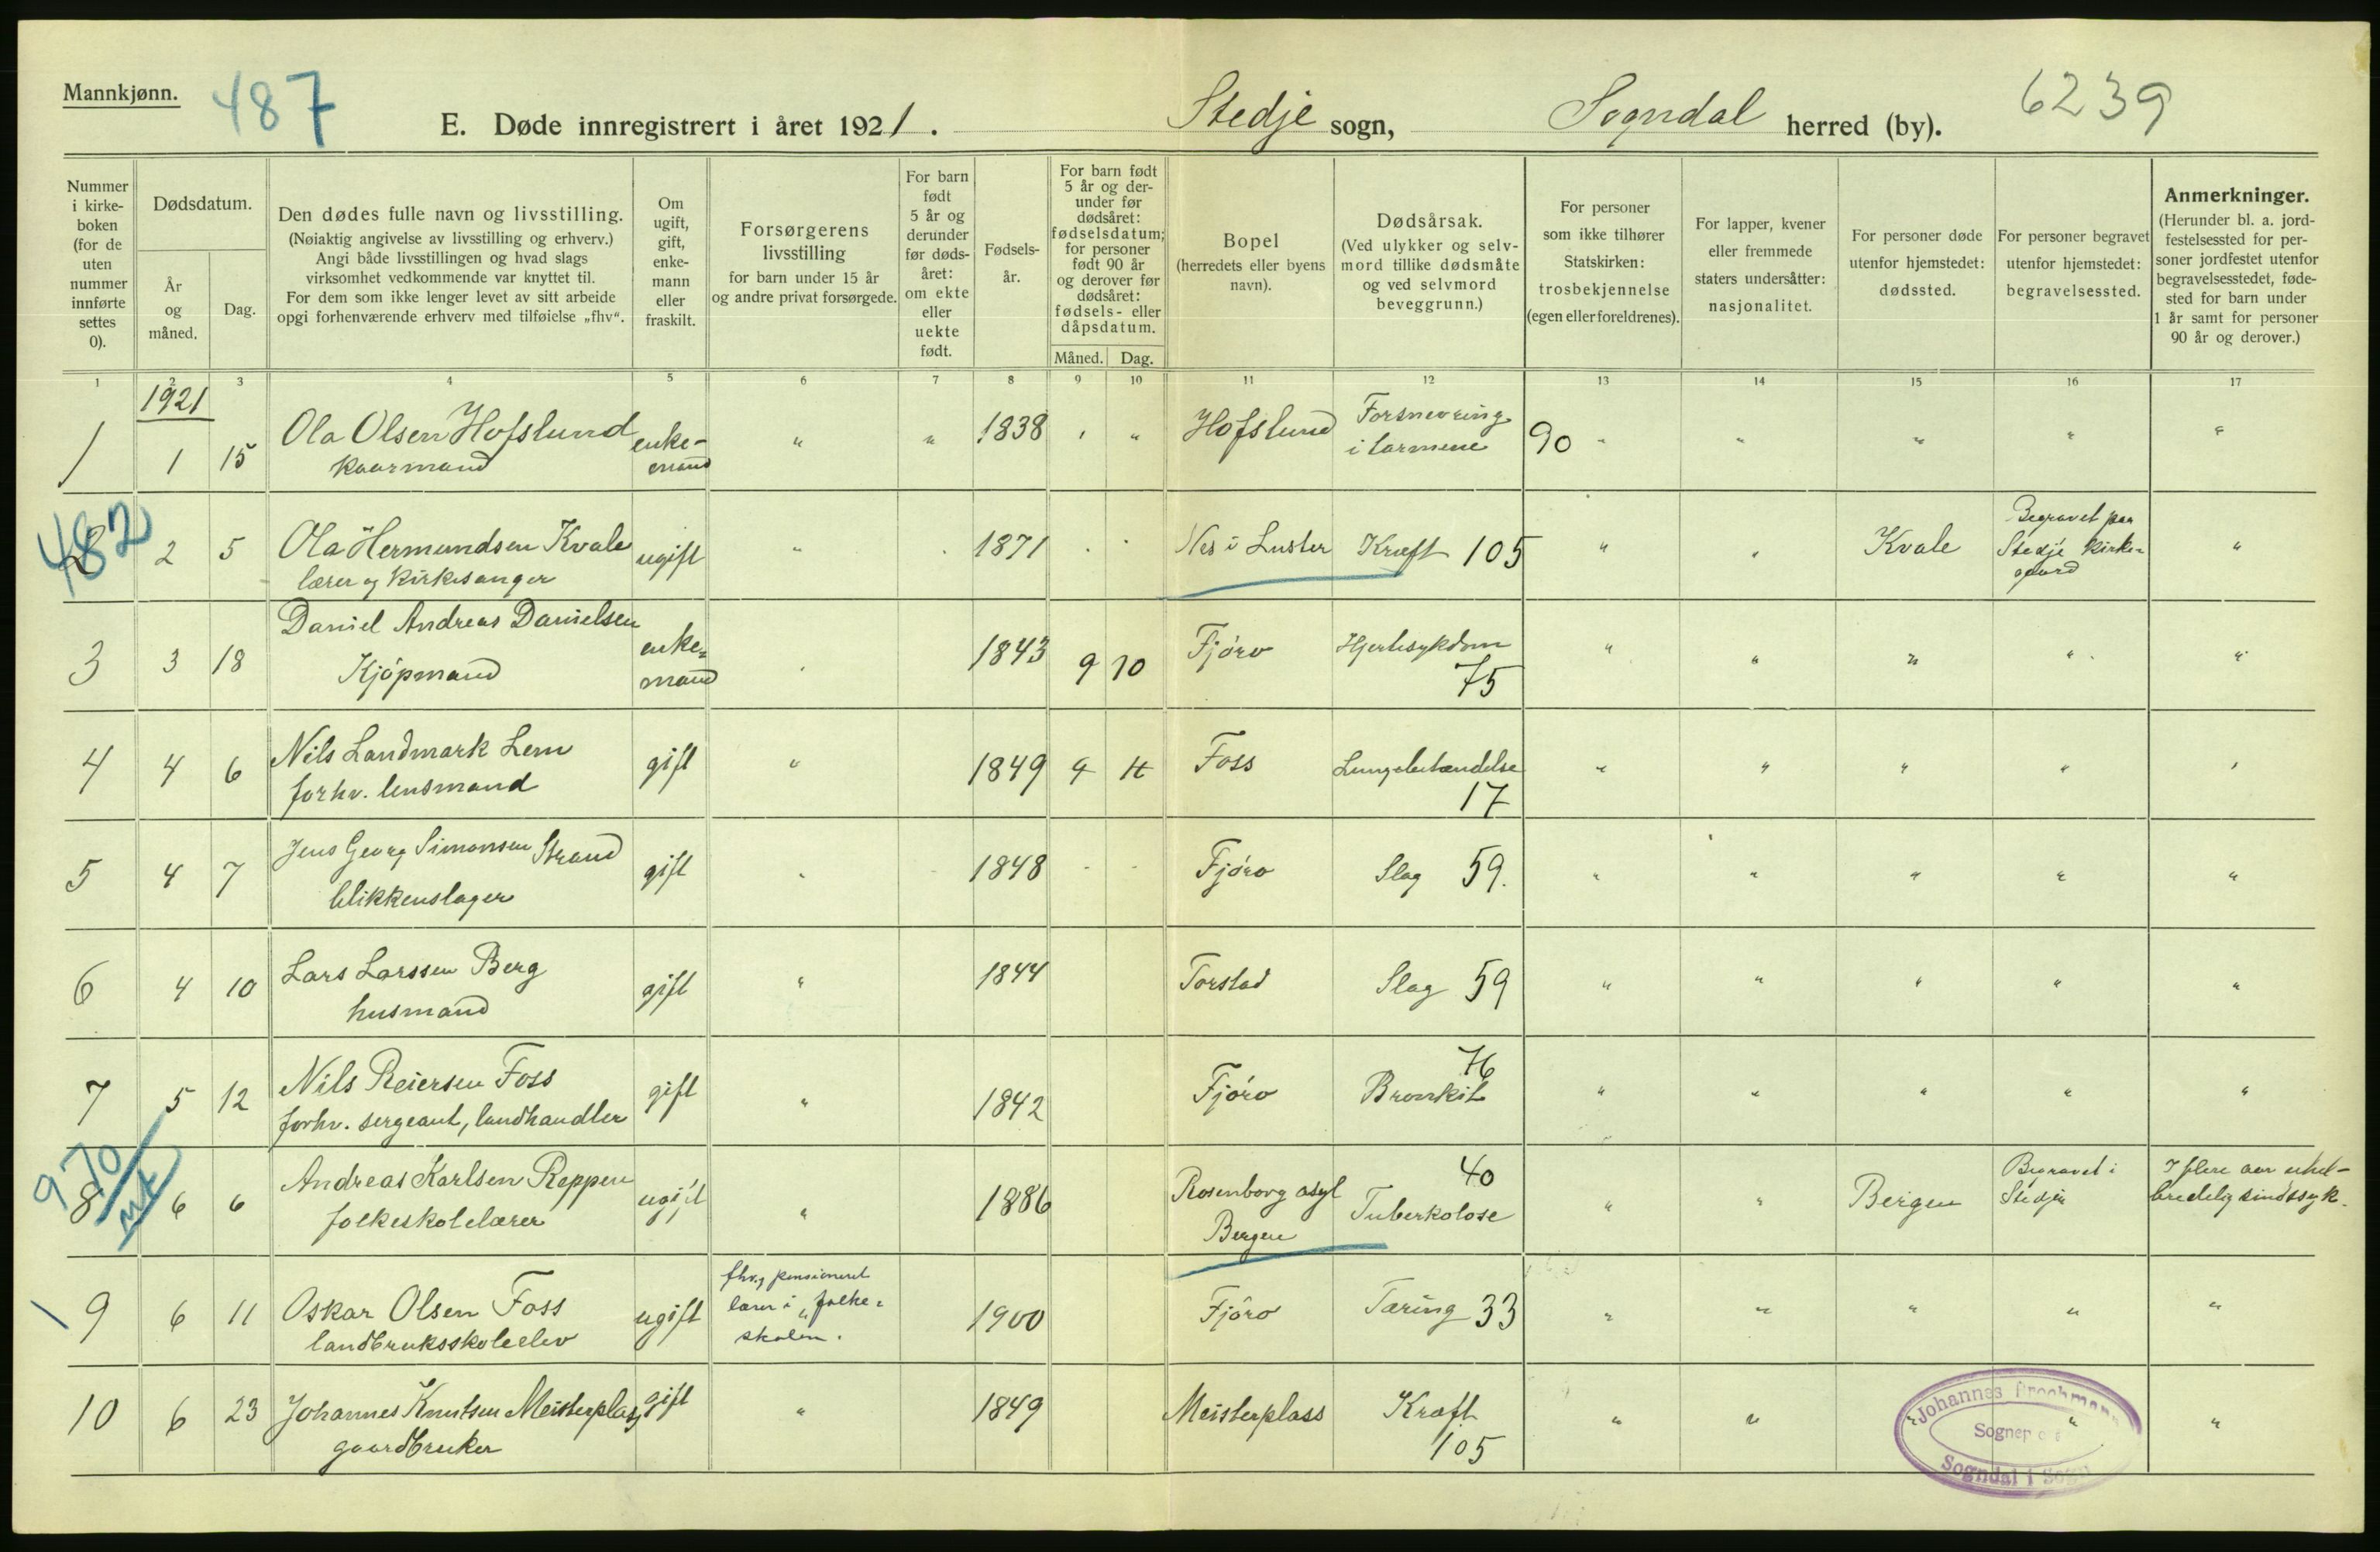 Mannkjønn.
487
E. Døde innregistrert i året 1921.
Stedje sogn,
Sogndal herred (by).
6239
Nummer
i kirke-
boken
(for de
uten
nummer
innførte
settes
0).
Dødsdatum.
År
og
måned.
Dag.
Den dødes fulle navn og livsstilling.
(Nøiaktig angivelse av livsstilling og erhverv.)
Angi både livsstillingen og hvad slags
virksomhet vedkommende var knyttet til.
For dem som ikke lenger levet av sitt arbeide
opgi forhenværende erhverv med tilføielse „fhv“.
Om
ugift,
gift,
enke-
mann
eller
fraskilt.
Forsørgerens
livsstilling
for barn under 15 år
og andre privat forsørgede.
For barn
født
5 år og
derunder
før døds-
året:
om ekte
eller
uekte
født.
Fødsels-
år.
For barn født
5 år og der-
under før
dødsåret:
fødselsdatum;
for personer
født 90 år
og derover før
dødsåret:
fødsels- eller
dåpsdatum.
Måned. Dag.
Bopel
(herredets eller byens
navn).
Dødsårsak.
(Ved ulykker og selv-
mord tillike dødsmåte
og ved selvmord
beveggrunn.)
For personer
som ikke tilhører
Statskirken:
trosbekjennelse
(egen eller foreldrenes).
For lapper, kvener
eller fremmede
staters undersåtter:
nasjonalitet.
For personer døde
utenfor hjemstedet:
dødssted.
For personer begravet
utenfor hjemstedet:
begravelsessted.
Anmerkninger.
(Herunder bl. a. jord-
festelsessted for per-
soner jordfestet utenfor
begravelsesstedet, føde-
sted for barn under
1 år samt for personer
90 år og derover.)
1 2 3 4 5 6 7 8 9 10 11 12 13 14 15 16 17
1921
1 1 15 Ola Olsen Hofslund enke- " " 1838 " Hofslund Forsnevring 90 " " " " "
kaarmand mand i tarmene
482
2 5 Ola Hermundsen Kvale ugift " 1871 Nes i Luster Kræft 105 " " Kvale Begravet paa "
lærer og kirkesanger Stedje kirke=
gaard
3 3 18 Daniel Andreas Danielsen enke= 1843 9 10 Fjøro Hjertesykdom " " " " "
Kjøpmand mand 75
4 4 6 Nils Landmark Lem gift " 1849 9 4 Foss Lungebetændelse " " " "
forhv. lensmand 17
5 4 7 Jens Georg Simonsen Strand gift 1848 Fjøro Slag 59. " " " " "
blikkenslager
6 4 10 Lars Larssen Berg gift " 1844 Torstad Slag 59 " " " " "
husmand
7 5 12 Nils Reiersen Foss gift " 1842 Fjøro 76 " " " " "
forhv. sergeant, landhandler Bronkit
970
8 6 6 Andreas Karlsen Reppen ugift " 1886 Rosenborg asyl 40 " " Bergen Begravet i I flere aar uhel-
folkeskolelærer Bergen Tuberkolose Stedje bredelig sindssyk.
9 6 11 Oskar Olsen Foss ugift fhv., pensioneret 1900 Fjøro Tæring 33 " " " " "
landbruksskoleelev lærer i folke=
skolen.
10 6 23 Johannes Knutsen Meisterplass gift " 1849 Meisterplass Kræft " " " "
gaardbruker 105
Johannes Brochmann
Sognep
Sogndal i Sogn